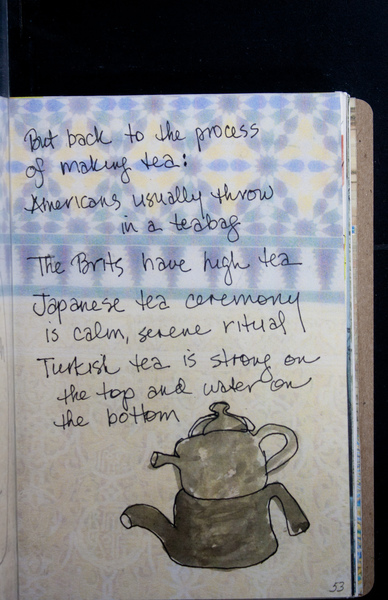 But back to the process
of making tea:
Americans usually throw
in a teabag
The Brits have high tea
Japanese tea ceremony
is calm, serene ritual
Turkish tea is strong on
the top and water on
the bottom
53